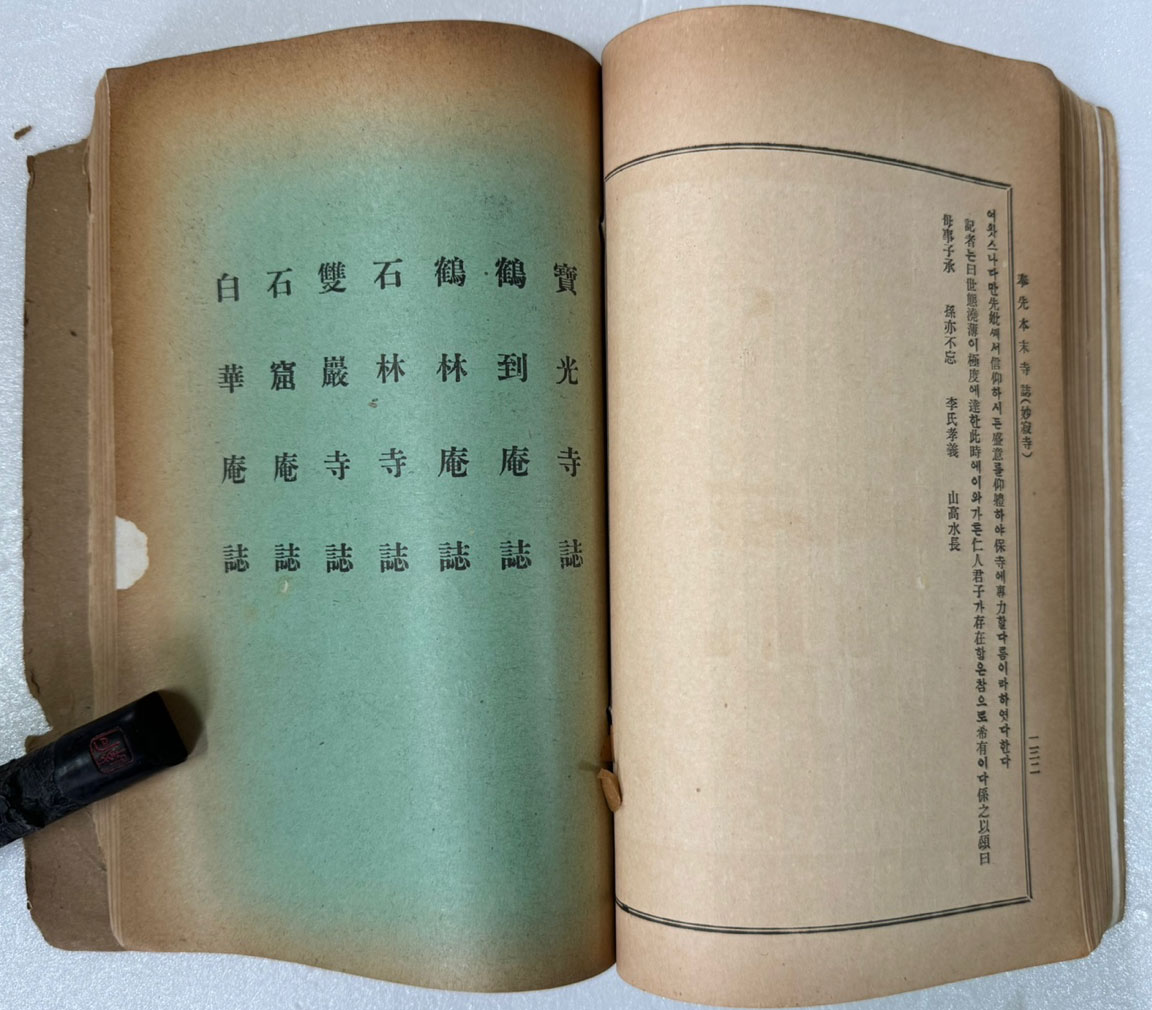 奉先本末寺誌(妙寂寺)
여왓스나다만先妣께서信仰하시든盛意를仰體하야保寺에專力할다름이라하엿다한다
記者는曰世態澆薄이極度에達한此時에이와가튼仁人君子가存在함은참으로希有이다係之以頌曰
母事子承 孫亦不忘 李氏孝義 山高水長
二三二
寶光寺誌
鶴到庵誌
鶴林庵誌
石林寺誌
雙巖寺誌
石窟庵誌
白華庵誌